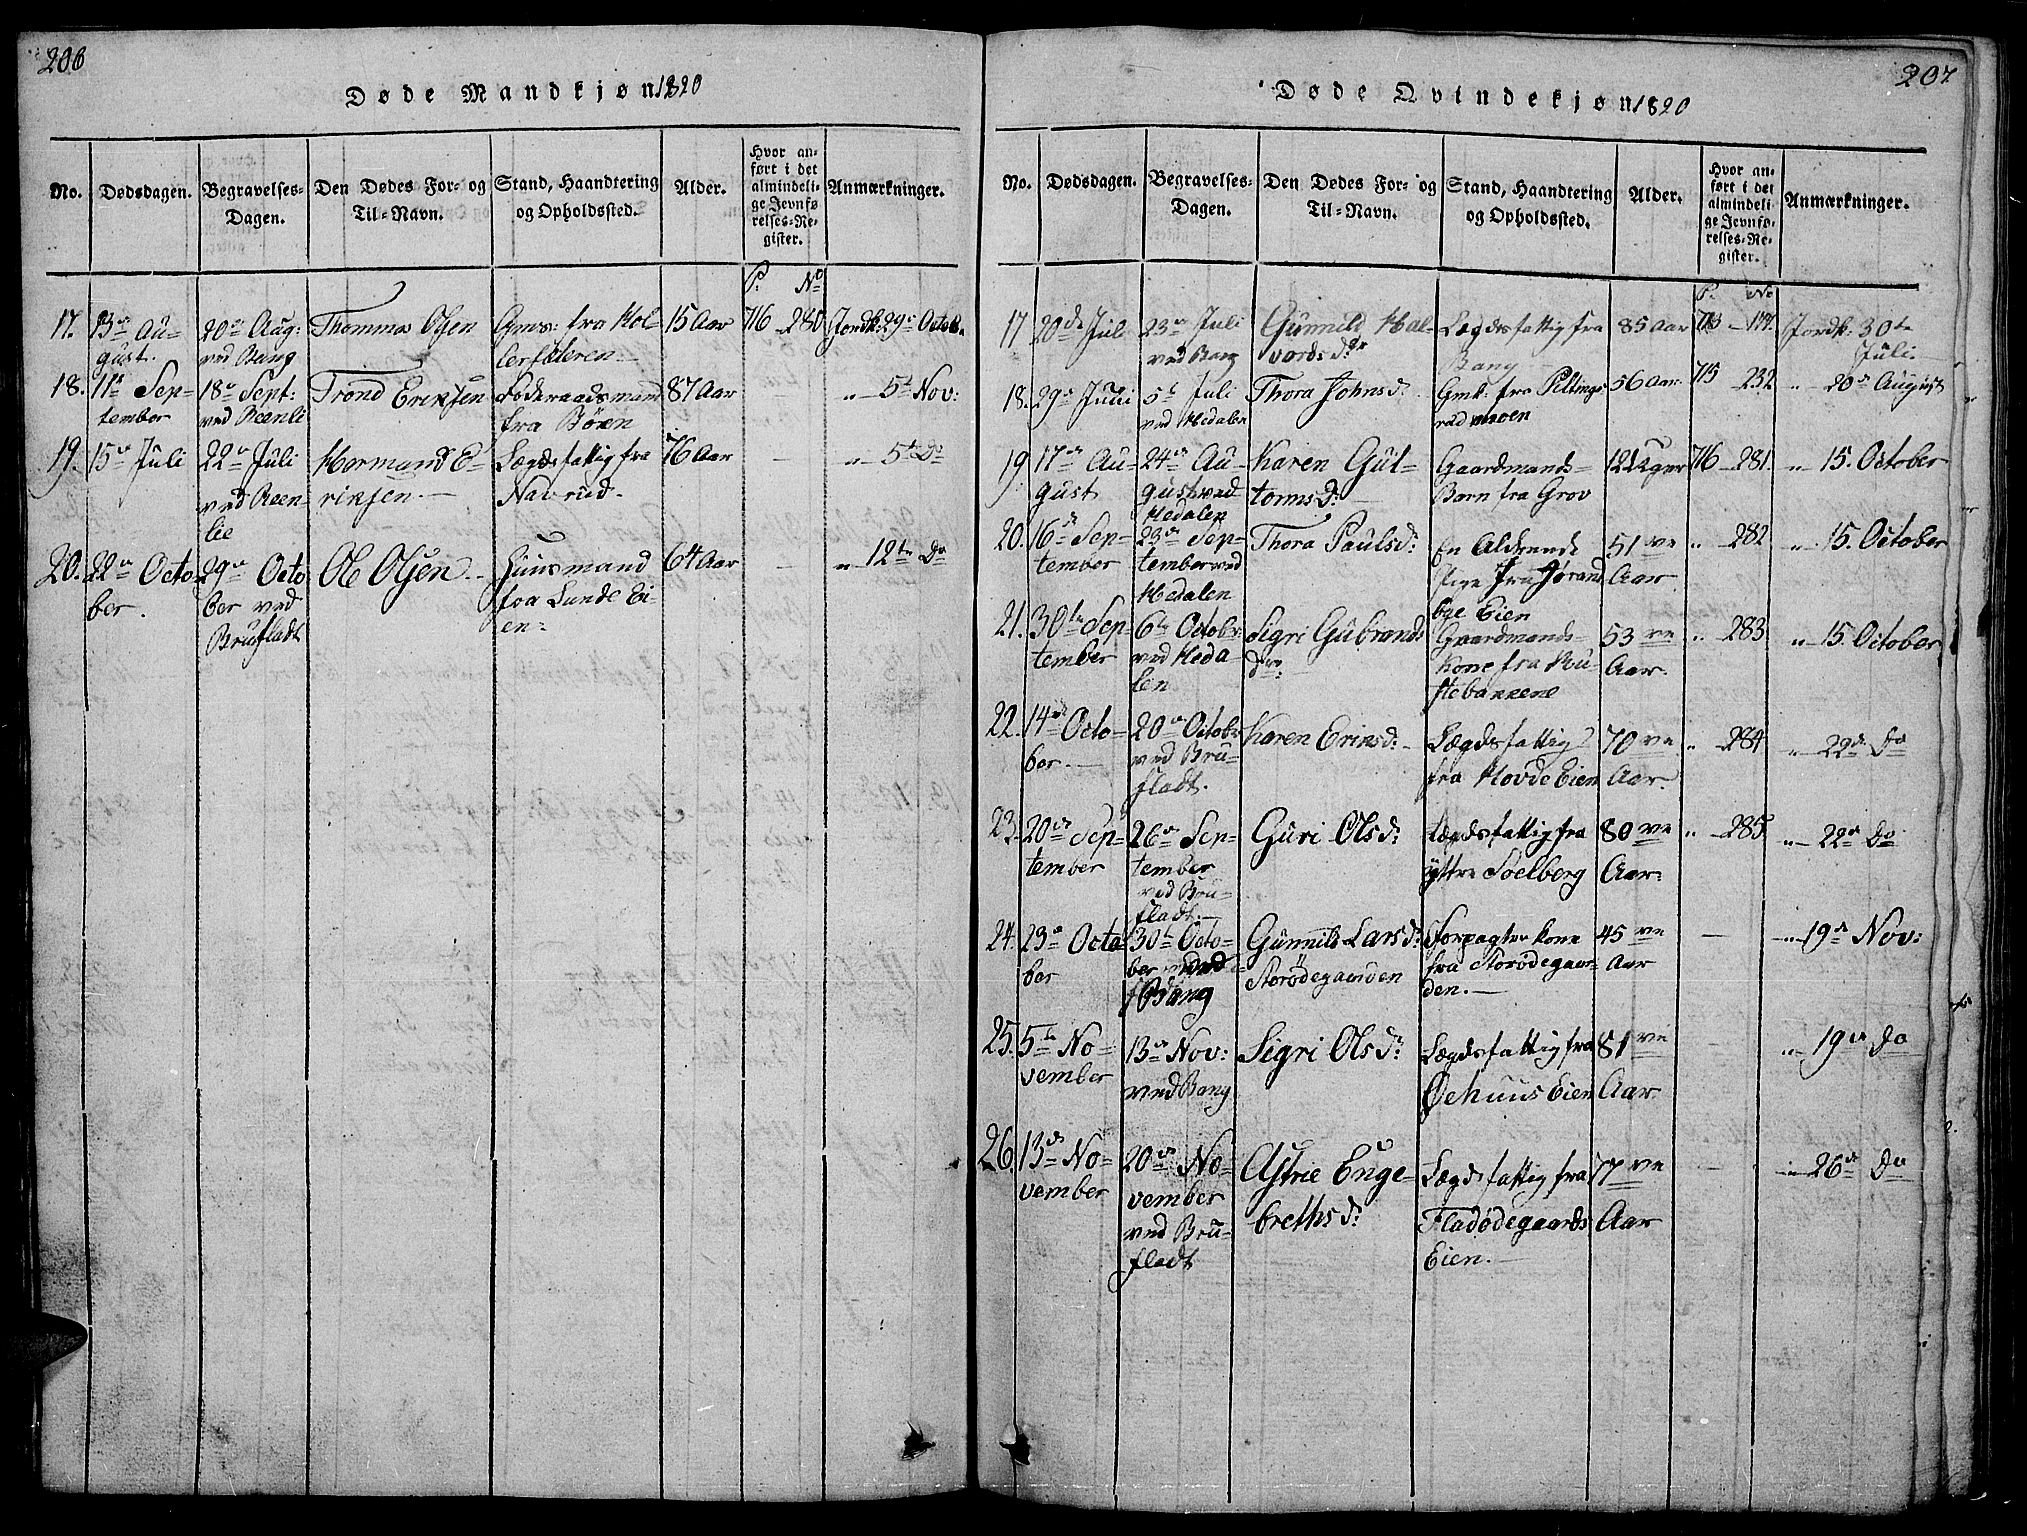 206
Døde Mandkjøn 1820
No.
Dødsdagen.
Begravelses-
Dagen.
Den Dødes For- og
Til-Navn.
Stand, Haandtering
og Opholdssted.
Alder.
Hvor an-
ført i det
almindeli-
ge Jevnfø-
relses-Re-
gister.
Anmærkninger.
P. No
17. 13de Au-
gust.
20de Aug:
ved Bang
Thommas Olsen
Gms: fra Kol
lersæteren
15 Aar
716 280
Jordk: 29de Octob.
18. 11te Sep-
tember
18de Sept:
ved Reenli
Trond Eriksen
Føderaadsmand
fra Böen
87 Aar
" 5te Nov:
19. 15de Juli
22de Juli
ved Reen-
lie
Hermand E-
riksen.
Lægdsfattig fra
Navrud.
76 Aar
" 5te Do
20. 22de Octo
ber.
29de Octo
ber ved
Brufladt
Ole Olsen
Huusmand
fra Lunde Ei-
en:
64 Aar
" 12te Do
207
Døde Qvindekjøn 1820
No.
Dødsdagen.
Begravelses-
Dagen.
Den Dødes For- og
Til-Navn.
Stand, Haandtering
og Opholdssted.
Alder.
Hvor an-
ført i det
almindeli-
ge Jevnfø-
relses-Re-
gister.
Anmærkninger.
P. No
17 20de Jul
23de Juli
ved Bang
Gunnild Hal-
vordsdr
Lægdsfattig fra
Bang
85 Aar
713
Jordk: 30te
Juli
18. 29de Juni
5te Juli
ved Hedalen
Thora Johnsd:
Gmk: fra Pilting
rud moen
56 Aar.
715 232
" 20de August
19 17de Au-
gust
24de Au-
gust ved
Hedalen
Karen Gut-
tormsd:
Gaardmands-
Barn fra Grov
12 Uger
716 281.
" 15. October
20. 16de Sep-
tember
23de Sep-
tember ved
Hedalen
Thora Paulsd:
En Aldrende
Pige fra Jørand
bye Eien
51 ve
Aar
" 282
" 15. October
21. 30te Sep-
tember
6te Octobr
ved Heda-
len
Sigri Gúbrands
dr:
Gaardmands-
Kone fra Ru-
stebakkene
53 ve
Aar.
" 283
" 15. October
22. 14de Octo-
ber.
20de Octobr
ved Bru-
fladt.
Karen Eriksd:
Lægdsfattig
fra Hovde Eien
70 ve
Aar.
" 284
" 22de Do
23. 20de Sep-
tember
26de Sep-
tember
ved Bru-
fladt.
Guri Olsd:
Lægdsfattig fra
yttre Soelberg
80 ve
Aar:
" 285
" 22de Do
24. 23de Octo
ber
30te Octo-
ber ved
Bang
Gunnild Larsd:
Storödegaarden
Forpagter kone
fra Storödegaar-
den.
45 ve
Aar
" 19de Nov:
25. 5te No-
vember
13de Nov:
ved Bang
Sigri Olsd:
Lægdsfattig fra
Øehuus Eien
81 ve
Aar.
" 19de Do
26. 13de No-
vember
20de No-
vember
ved Bru-
fladt
Astrie Enge-
brethsd:
Lægdsfattig fra
Fladødegaards
Eien.
77 ve
Aar
" 26de Do